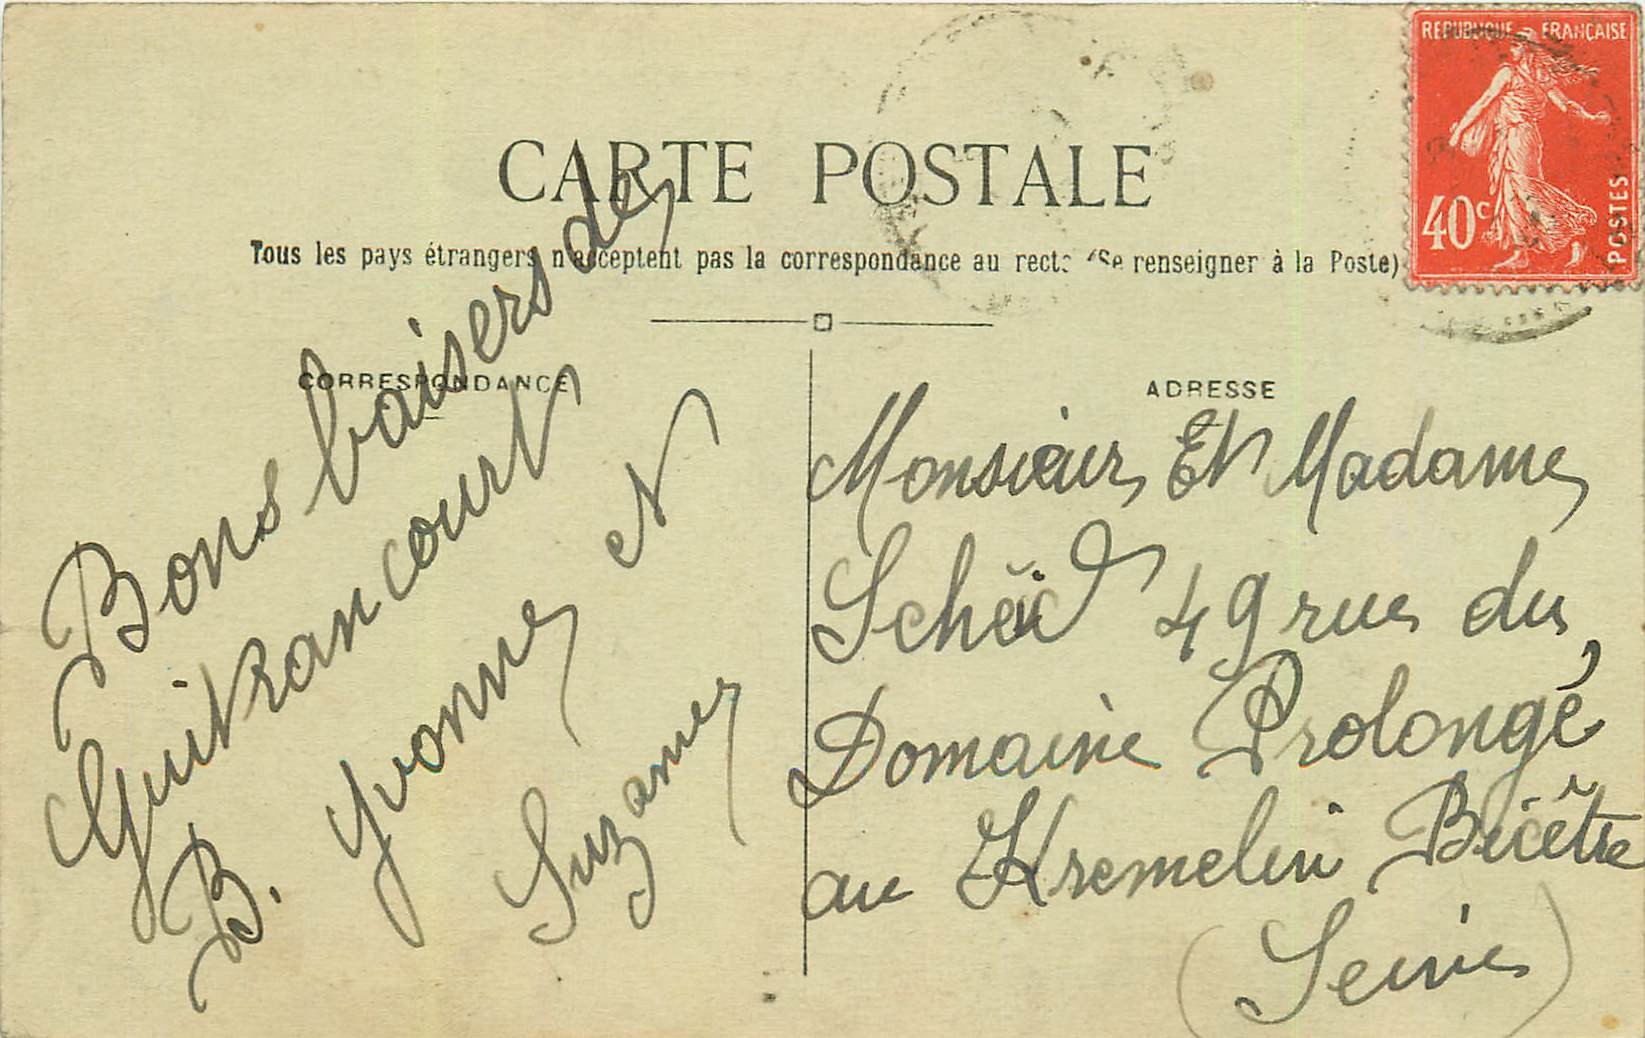 CARTE POSTALE
Tous les pays étrangers n'acceptent pas la correspondance au recto (Se renseigner à la Poste)
REPUBLIQUE FRANÇAISE
40c
POSTES
CORRESPONDANCE
Bons baisers de
Guitrancourt
B. Yvonne et
Suzanne
ADRESSE
Monsieur Et Madame
49 rue du
Domaine Prolongé
au Kremelin Bicêtre
(Seine)